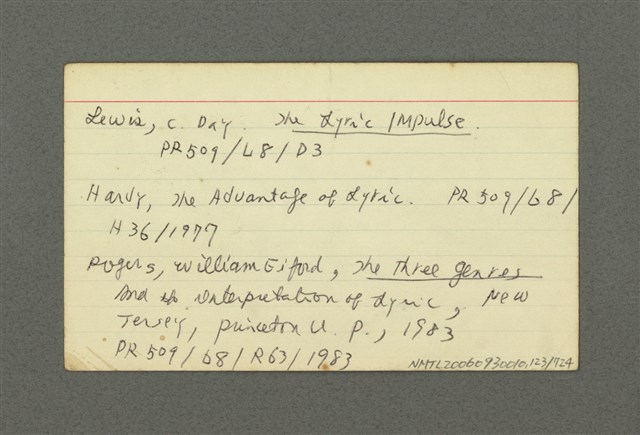 Lewis, C. Day. The Lyric Impulse.
PR 509 / L8 / D3
Hardy, The Advantage of Lyric. PR 509 / L8 /
H 36 / 1977
Rogers, William Elford, The Three Genres
And the Interpretation of Lyric, New
Jersey, Princeton U. P., 1983
PR 509 / L8 / R63 / 1983
NMTL20060930010,123/724